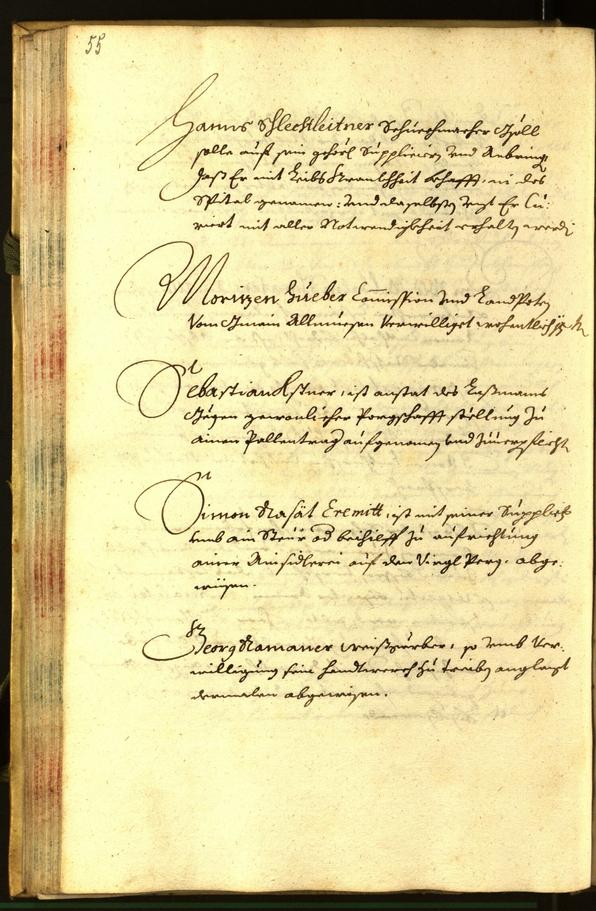 55
Hanns Schlechleitner Schuechmacher Gsöll
solle auf sein gehors. Supplicirn und Anbring,
daß Er mit Leibs Kranckheit behafft, in des
Spital genomen: und daselbsten Er Cu:
riert mit aller Notwendigkheit erhalten werdn
Moritzen Hueber Comission und
vom Gmain Allmuesen Verwilliget wohentlich
Sebastian Astner, ist anstat des
gewonlicher Porgschafft stellung zu
ainen Pallentrag aufgenomen und
Simon Rasät Eremitt, ist mit seiner Supplic
umb ain Steur od beihilff zu aufrichtung
ainer Ainsidlerei auf den Virgl Perg, abge:
wisen.
Georg Ramauer weißgärber, so umb Ver:
willigung sein handtwerch zu treiben anglangt
dermalen abgewisen.